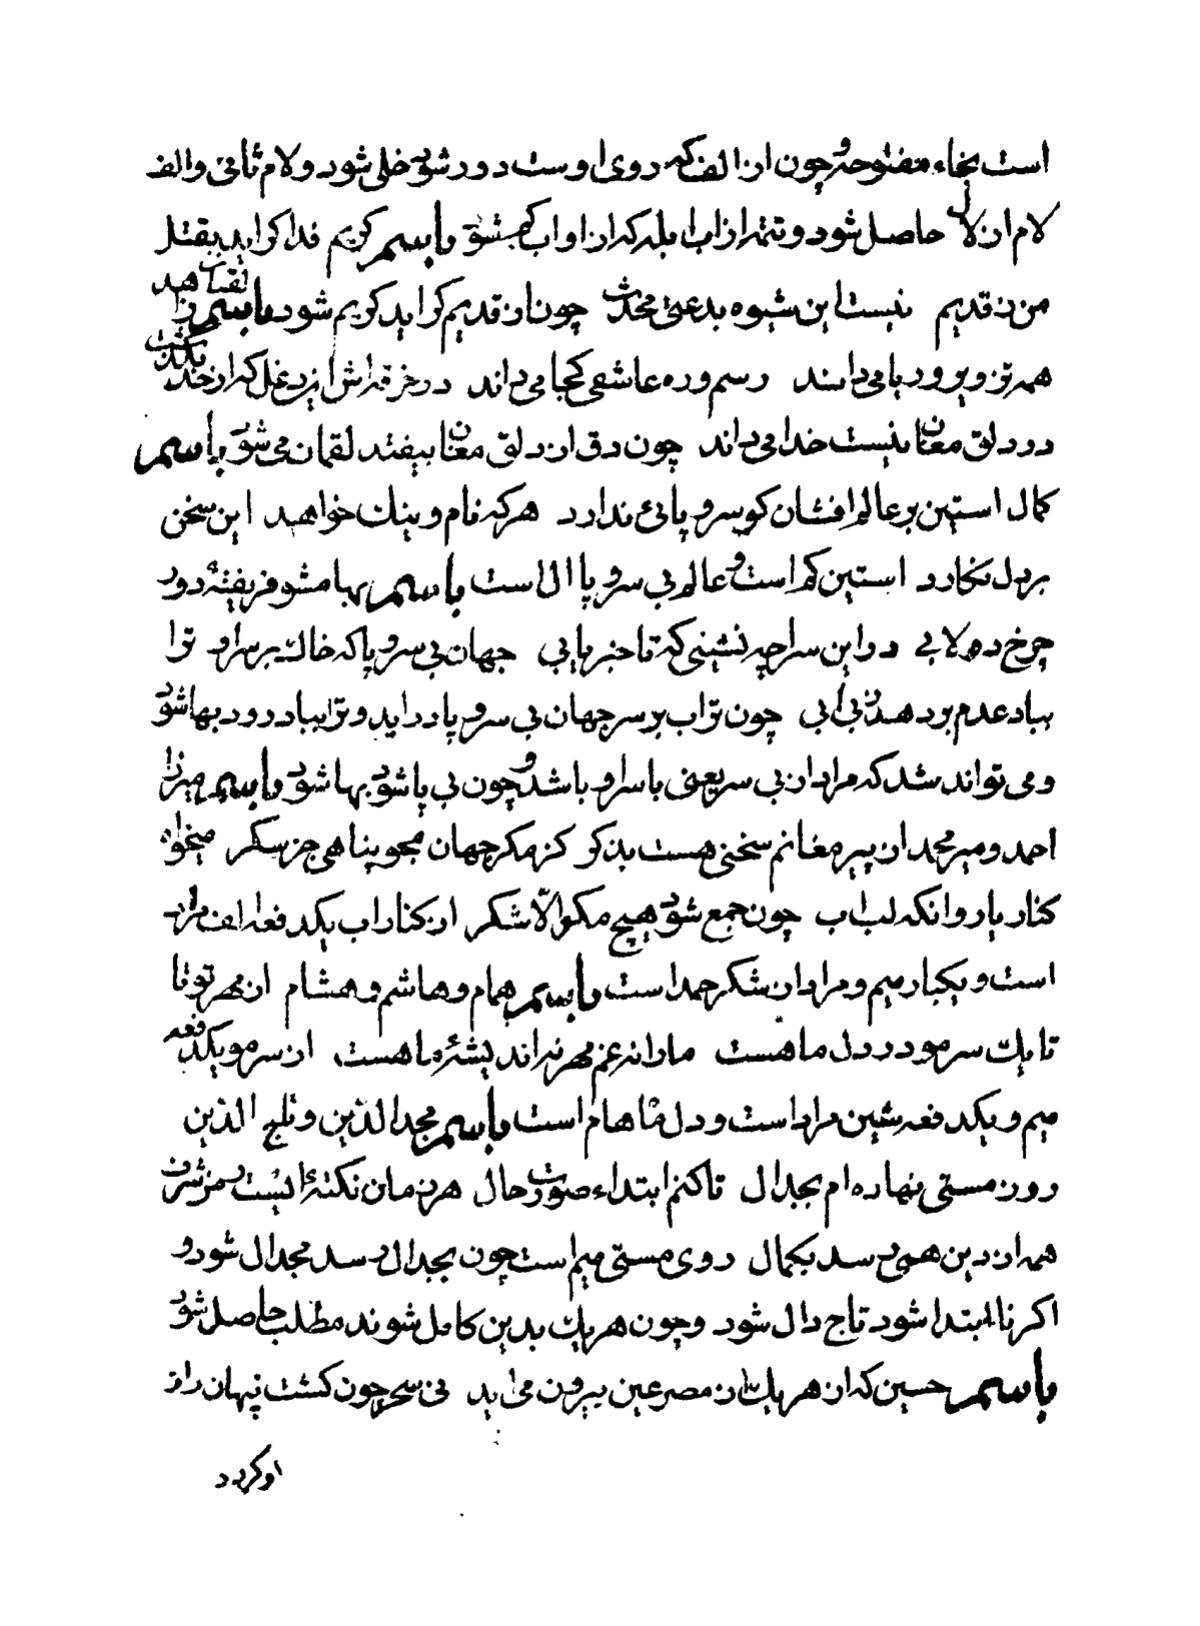 است بخاء مفتوحه و چون از الف که روی اوست دور شود خلی شود و لام ثانی و الف
لام از لال حاصل شود و تتمه از اب ابله که از او اب کم شود باسم کریم فدا کراید بقتل
من ز قدیم نیست این شیوه بدعتی محدث چون از قدیم کراید کریم شود باسم
همه تزویر و ریا می‌داند رسم و ره عاشقی کجا می‌داند در خرقه اش از دغل که از
در دلق مغان نیست خدا می‌داند چون دق از دلق مغان بیفتد لقمان می شود باسم
کمال استین بر عالم افشان کو سر و پائی ندارد هر که نام و ینک خواهد این سخن
بر دل نکارد استین کم است و عالم بی سر و پا ال است باسم بها مشو فریفتهٔ دور
چرخ دولابی در این سراچه نشینی که تا خبر یابی جهان بی سر و پا که خاک بر سر او ترا
بباد عدم بر دهد بی ابی چون تراب بر سر جهان بی سر و پا در اید و ترا بباد رود بها شود
و می تواند شد که مراد از بی سر یعنی با سر او باشد و چون بی پا شود بها شود باسم میرزا
احمد و میر محمد از پیر مغانم سخنی هست بذکر کز مکر جهان مجو پناهی جز سکر میخواه
کنار یار و انکه لب اب چون جمع شود هیچ مکو الّا شکر از کنار اب یکدفعه الف مراد
است و یکبار میم و مراد از شکر حمد است باسم همام و هاشم و هشام از مهر تو تا
تا یک سر مو در دل ما هست ما را نه غم مهر نه اندیشهٔ ما هست از سر مو یکدفعه
میم و یکدفعه شین مراد است و دل ما هام است باسم مجد الدّین و تاج الدّین
روز مستی نهاده ام بجدال تا کنم ابتداء صورت حال هر زمان نکتهٔ
همه از دین همی رسد بکمال روی مستی میم است چون بجدال رسد مجدال شود و
اکر تا ابتدا شود تاج دال شود و چون هر یک بدین کامل شوند مطلب حاصل شود
باسم حسین که از هر یک از مصرعین بیرون می اید نی سحر چون کشت نهان راز
او کرد